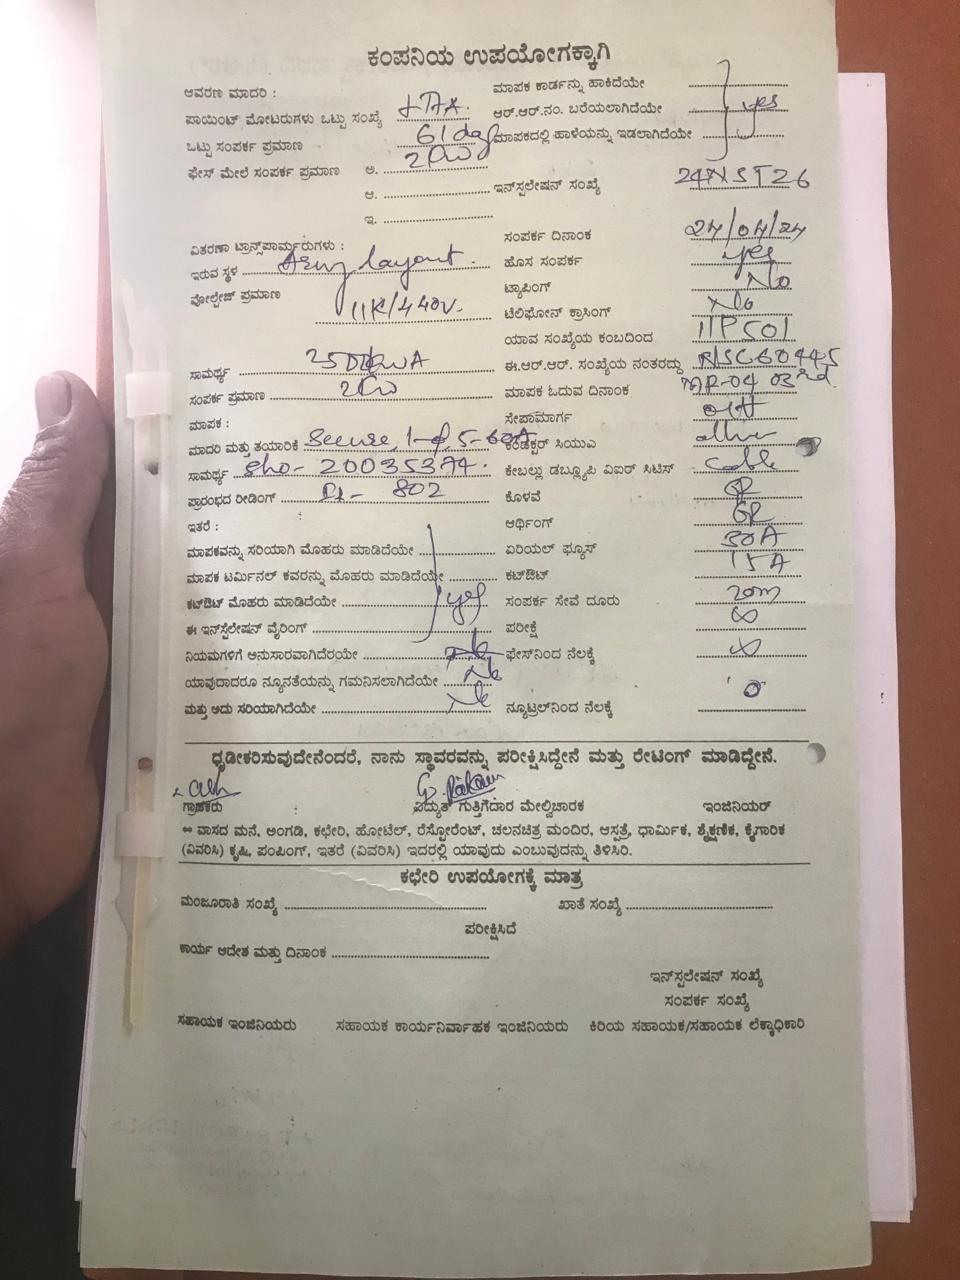 ಕಂಪನಿಯ ಉಪಯೋಗಕ್ಕಾಗಿ
ಆವರಣ ಮಾದರಿ :
ಮಾಪಕ ಕಾರ್ಡನ್ನು ಹಾಕಿದೆಯೇ
ಪಾಯಿಂಟ್ ಮೋಟರುಗಳು ಒಟ್ಟು ಸಂಖ್ಯೆ
ಆರ್.ಆರ್.ನಂ. ಬರೆಯಲಾಗಿದೆಯೇ yes
ಒಟ್ಟು ಸಂಪರ್ಕ ಪ್ರಮಾಣ
ಮಾಪಕದಲ್ಲಿ ಹಾಳೆಯನ್ನು ಇಡಲಾಗಿದೆಯೇ
ಫೇಸ್ ಮೇಲೆ ಸಂಪರ್ಕ ಪ್ರಮಾಣ ಅ. 2KW
ಆ.
ಇನ್‌ಸ್ಟಲೇಷನ್ ಸಂಖ್ಯೆ 24NST26
ಇ.
ಸಂಪರ್ಕ ದಿನಾಂಕ 24/04/24
ವಿತರಣಾ ಟ್ರಾನ್ಸ್‌ಫಾರ್ಮರುಗಳು :
ಹೊಸ ಸಂಪರ್ಕ yes
ಇರುವ ಸ್ಥಳ layout.
ಟ್ಯಾಪಿಂಗ್ No
ವೋಲ್ಟೇಜ್ ಪ್ರಮಾಣ 11K/440V.
ಟೆಲಿಫೋನ್ ಕ್ರಾಸಿಂಗ್ No
ಯಾವ ಸಂಖ್ಯೆಯ ಕಂಬದಿಂದ 11P501
ಸಾಮರ್ಥ್ಯ
ಈ.ಆರ್.ಆರ್. ಸಂಖ್ಯೆಯ ನಂತರದ್ದು
ಸಂಪರ್ಕ ಪ್ರಮಾಣ 2KW
ಮಾಪಕ ಓದುವ ದಿನಾಂಕ MR-04 03rd.
ಮಾಪಕ :
ಸೇವಾಮಾರ್ಗ OH
ಮಾದರಿ ಮತ್ತು ತಯಾರಿಕೆ Secure, 1-φ 5-60A
ಕಂಡಕ್ಟರ್ ಸಿಯುಎ
ಸಾಮರ್ಥ್ಯ Sno- 20035374.
ಕೇಬಲ್ಲು ಡಬ್ಲ್ಯೂಪಿ ವಿಐಆರ್ ಸಿಟಿಸ್ Cable
ಪ್ರಾರಂಭದ ರೀಡಿಂಗ್ 802
ಕೊಳವೆ
ಇತರೆ :
ಆರ್ಥಿಂಗ್
ಮಾಪಕವನ್ನು ಸರಿಯಾಗಿ ಮೊಹರು ಮಾಡಿದೆಯೇ
ಏರಿಯಲ್ ಫ್ಯೂಸ್ 30A
ಮಾಪಕ ಟರ್ಮಿನಲ್ ಕವರನ್ನು ಮೊಹರು ಮಾಡಿದೆಯೇ
ಕಟ್‌ಔಟ್ 15A
ಕಟ್‌ಔಟ್ ಮೊಹರು ಮಾಡಿದೆಯೇ yes
ಸಂಪರ್ಕ ಸೇವೆ ದೂರು 20m
ಈ ಇನ್‌ಸ್ಟಲೇಷನ್ ವೈರಿಂಗ್
ಪರೀಕ್ಷೆ ∞
ನಿಯಮಗಳಿಗೆ ಅನುಸಾರವಾಗಿದೆಯೇ
ಫೇಸ್‌ನಿಂದ ನೆಲಕ್ಕೆ ∞
ಯಾವುದಾದರೂ ನ್ಯೂನತೆಯನ್ನು ಗಮನಿಸಲಾಗಿದೆಯೇ No
ಮತ್ತು ಅದು ಸರಿಯಾಗಿದೆಯೇ No
ನ್ಯೂಟ್ರಲ್‌ನಿಂದ ನೆಲಕ್ಕೆ 0
ಧೃಡೀಕರಿಸುವುದೇನೆಂದರೆ, ನಾನು ಸ್ಥಾವರವನ್ನು ಪರೀಕ್ಷಿಸಿದ್ದೇನೆ ಮತ್ತು ರೇಟಿಂಗ್ ಮಾಡಿದ್ದೇನೆ.
ಗ್ರಾಹಕರು ವಿದ್ಯುತ್ ಗುತ್ತಿಗೆದಾರ ಮೇಲ್ವಿಚಾರಕ ಇಂಜಿನಿಯರ್
** ವಾಸದ ಮನೆ, ಅಂಗಡಿ, ಕಛೇರಿ, ಹೋಟೆಲ್, ರೆಸ್ಟೋರೆಂಟ್, ಚಲನಚಿತ್ರ ಮಂದಿರ, ಆಸ್ಪತ್ರೆ, ಧಾರ್ಮಿಕ, ಶೈಕ್ಷಣಿಕ, ಕೈಗಾರಿಕ
(ವಿವರಿಸಿ) ಕೃಷಿ, ಪಂಪಿಂಗ್, ಇತರೆ (ವಿವರಿಸಿ) ಇದರಲ್ಲಿ ಯಾವುದು ಎಂಬುವುದನ್ನು ತಿಳಿಸಿರಿ.
ಕಛೇರಿ ಉಪಯೋಗಕ್ಕೆ ಮಾತ್ರ
ಮಂಜೂರಾತಿ ಸಂಖ್ಯೆ ಖಾತೆ ಸಂಖ್ಯೆ
ಪರೀಕ್ಷಿಸಿದೆ
ಕಾರ್ಯ ಆದೇಶ ಮತ್ತು ದಿನಾಂಕ
ಇನ್‌ಸ್ಟಲೇಷನ್ ಸಂಖ್ಯೆ
ಸಂಪರ್ಕ ಸಂಖ್ಯೆ
ಸಹಾಯಕ ಇಂಜಿನಿಯರು ಸಹಾಯಕ ಕಾರ್ಯನಿರ್ವಾಹಕ ಇಂಜಿನಿಯರು ಕಿರಿಯ ಸಹಾಯಕ/ಸಹಾಯಕ ಲೆಕ್ಕಾಧಿಕಾರಿ